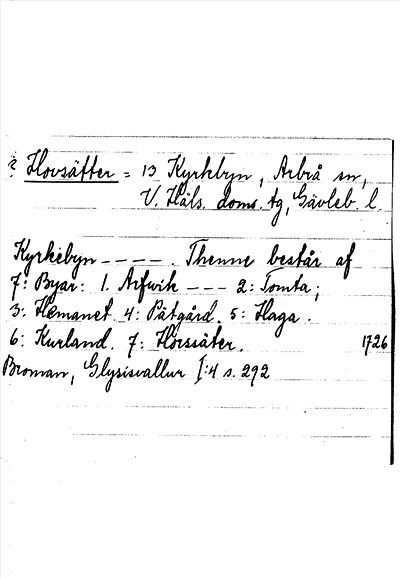 ? Hovsätter = 13 Kyrkbyn, Arbrå sn,
V. Häls. doms. tg, Gävleb. l.
Kyrkebyn - - - - . Thenne består af
7: Byar: 1. Arfwik - - - 2: Tomta;
3: Hemanet. 4: Pätgård. 5: Haga.
6: Kurland. 7: Hörssäter. 1726
Broman, Glysisvallur I:4 s. 292